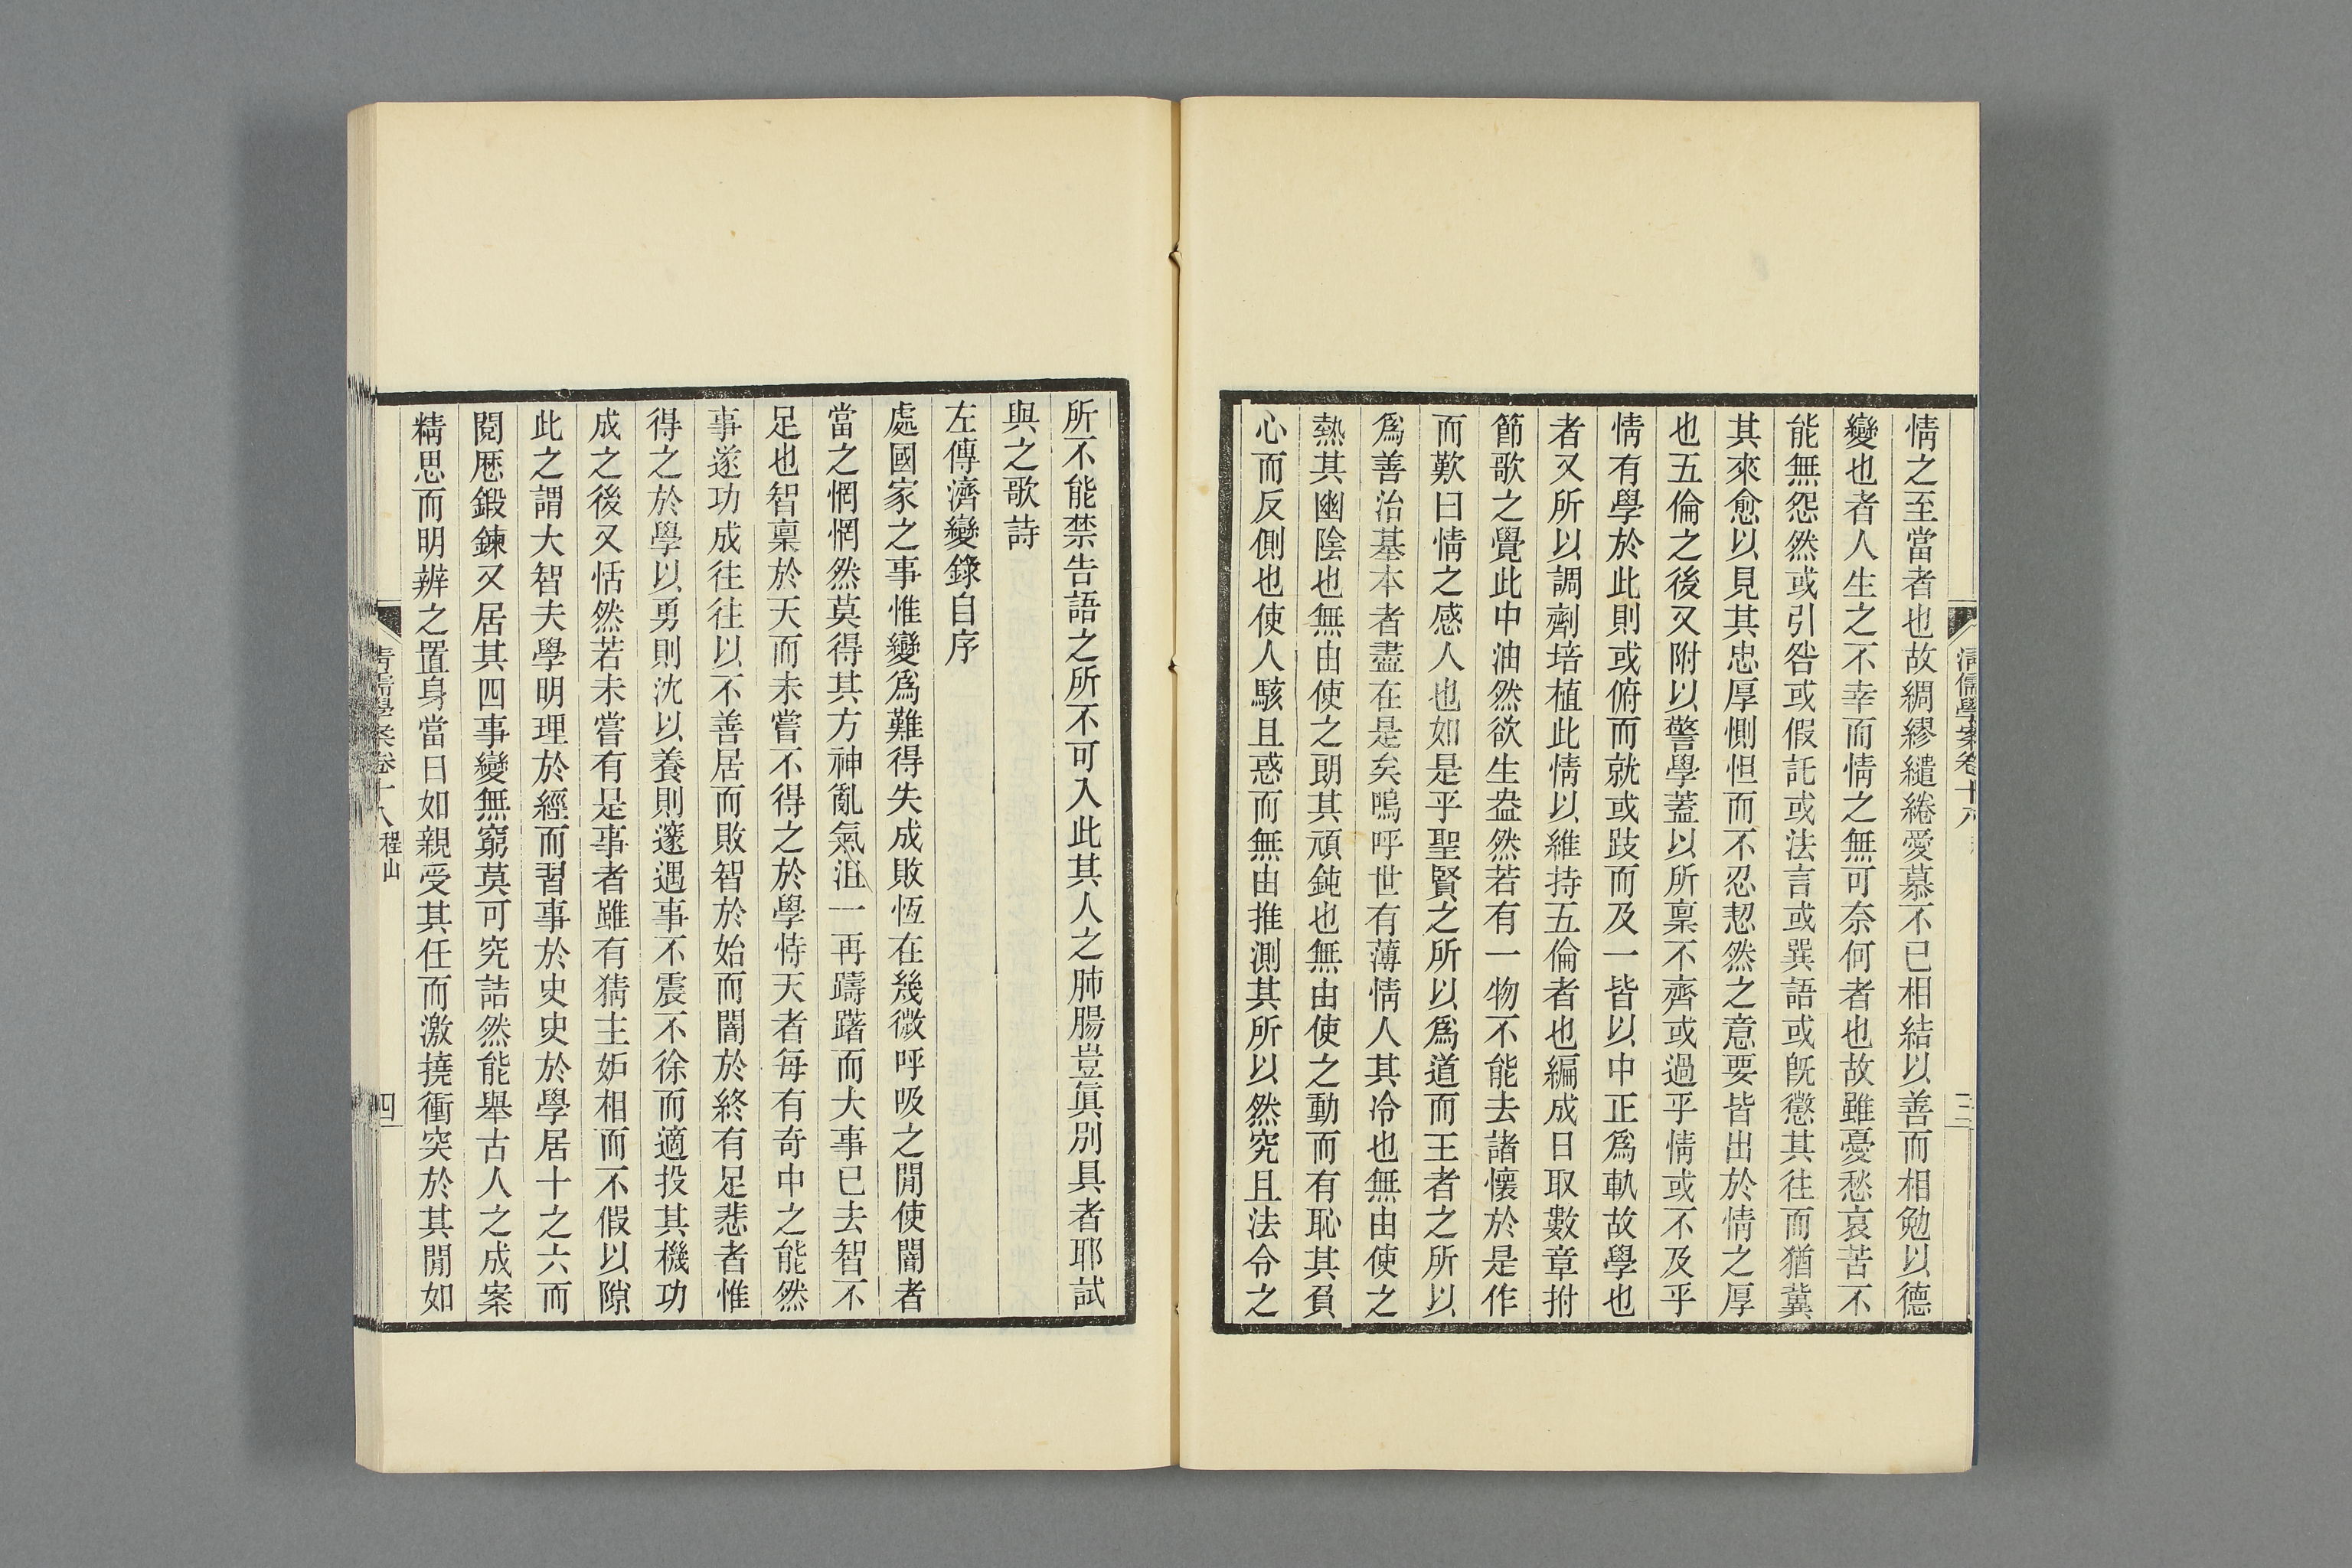 清儒學案卷十八
三
情之至當者也故綢繆繾綣愛慕不已相結以善而相勉以德
變也者人生之不幸而情之無可奈何者也故雖憂愁哀苦不
能無怨然或引咎或假託或法言或巽語或旣懲其往而猶冀
其來愈以見其忠厚惻怛而不忍恝然之意要皆出於情之厚
也五倫之後又附以警學蓋以所稟不齊或過乎情或不及乎
情有學於此則或俯而就或跂而及一皆以中正爲軌故學也
者又所以調劑培植此情以維持五倫者也編成日取數章拊
節歌之覺此中油然欲生盎然若有一物不能去諸懷於是作
而歎曰情之感人也如是乎聖賢之所以爲道而王者之所以
爲善治基本者盡在是矣嗚呼世有薄情人其冷也無由使之
熱其幽陰也無由使之朗其頑鈍也無由使之動而有恥其負
心而反側也使人駭且惑而無由推測其所以然究且法令之
所不能禁告語之所不可入此其人之肺腸豈眞別具者耶試
與之歌詩
左傳濟變錄自序
處國家之事惟變爲難得失成敗恆在幾微呼吸之閒使闇者
當之惘惘然莫得其方神亂氣沮一再躊躇而大事已去智不
足也智稟於天而未嘗不得之於學恃天者每有奇中之能然
事遂功成往往以不善居而敗智於始而闇於終有足悲者惟
得之於學以勇則沈以養則邃遇事不震不徐而適投其機功
成之後又恬然若未嘗有是事者雖有猜主妒相而不假以隙
此之謂大智夫學明理於經而習事於史史於學居十之六而
閱厯鍛鍊又居其四事變無窮莫可究詰然能舉古人之成案
精思而明辨之置身當日如親受其任而激撓衝突於其閒如
清儒學案卷十八 程山
四